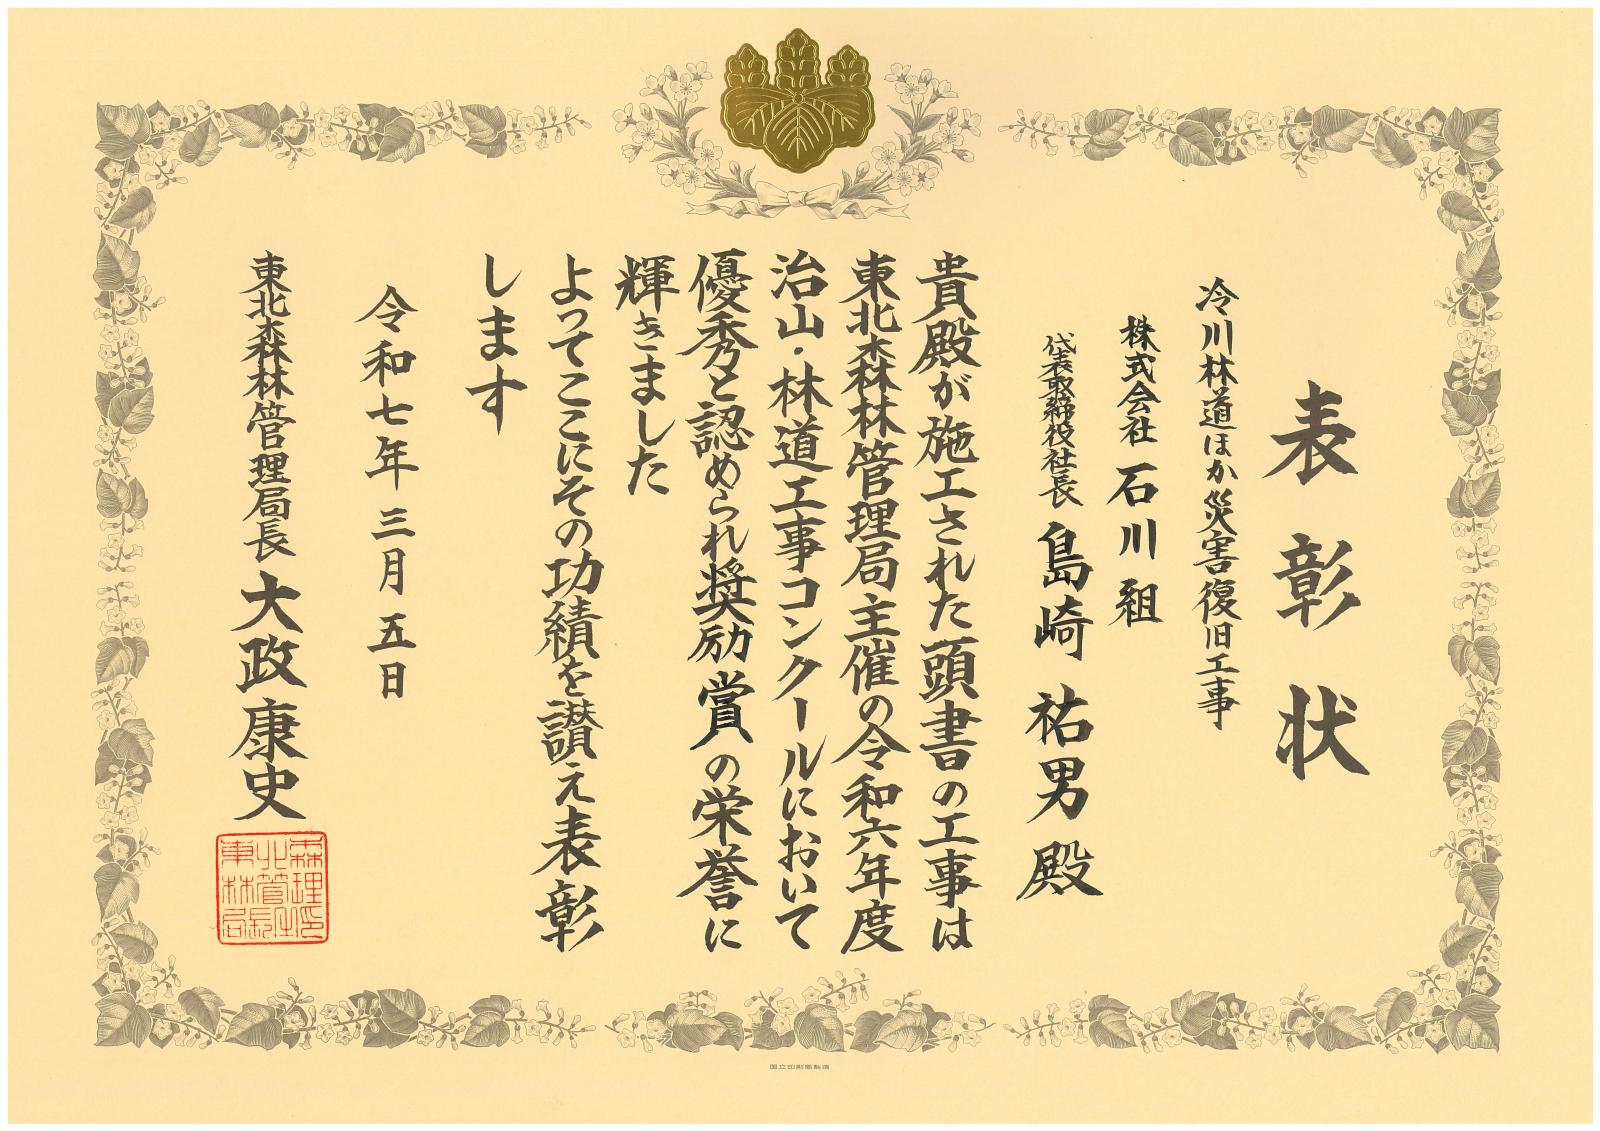 表彰状
冷川林道ほか災害復旧工事
株式会社 石川組
代表取締役社長 島崎 祐男 殿
貴殿が施工された頭書の工事は
東北森林管理局主催の令和六年度
治山・林道工事コンクールにおいて
優秀と認められ奨励賞の栄誉に
輝きました
よってここにその功績を讃え表彰
します
令和七年三月五日
東北森林管理局長 大政康史
東北森
林管理
局長印
国立印刷局製造